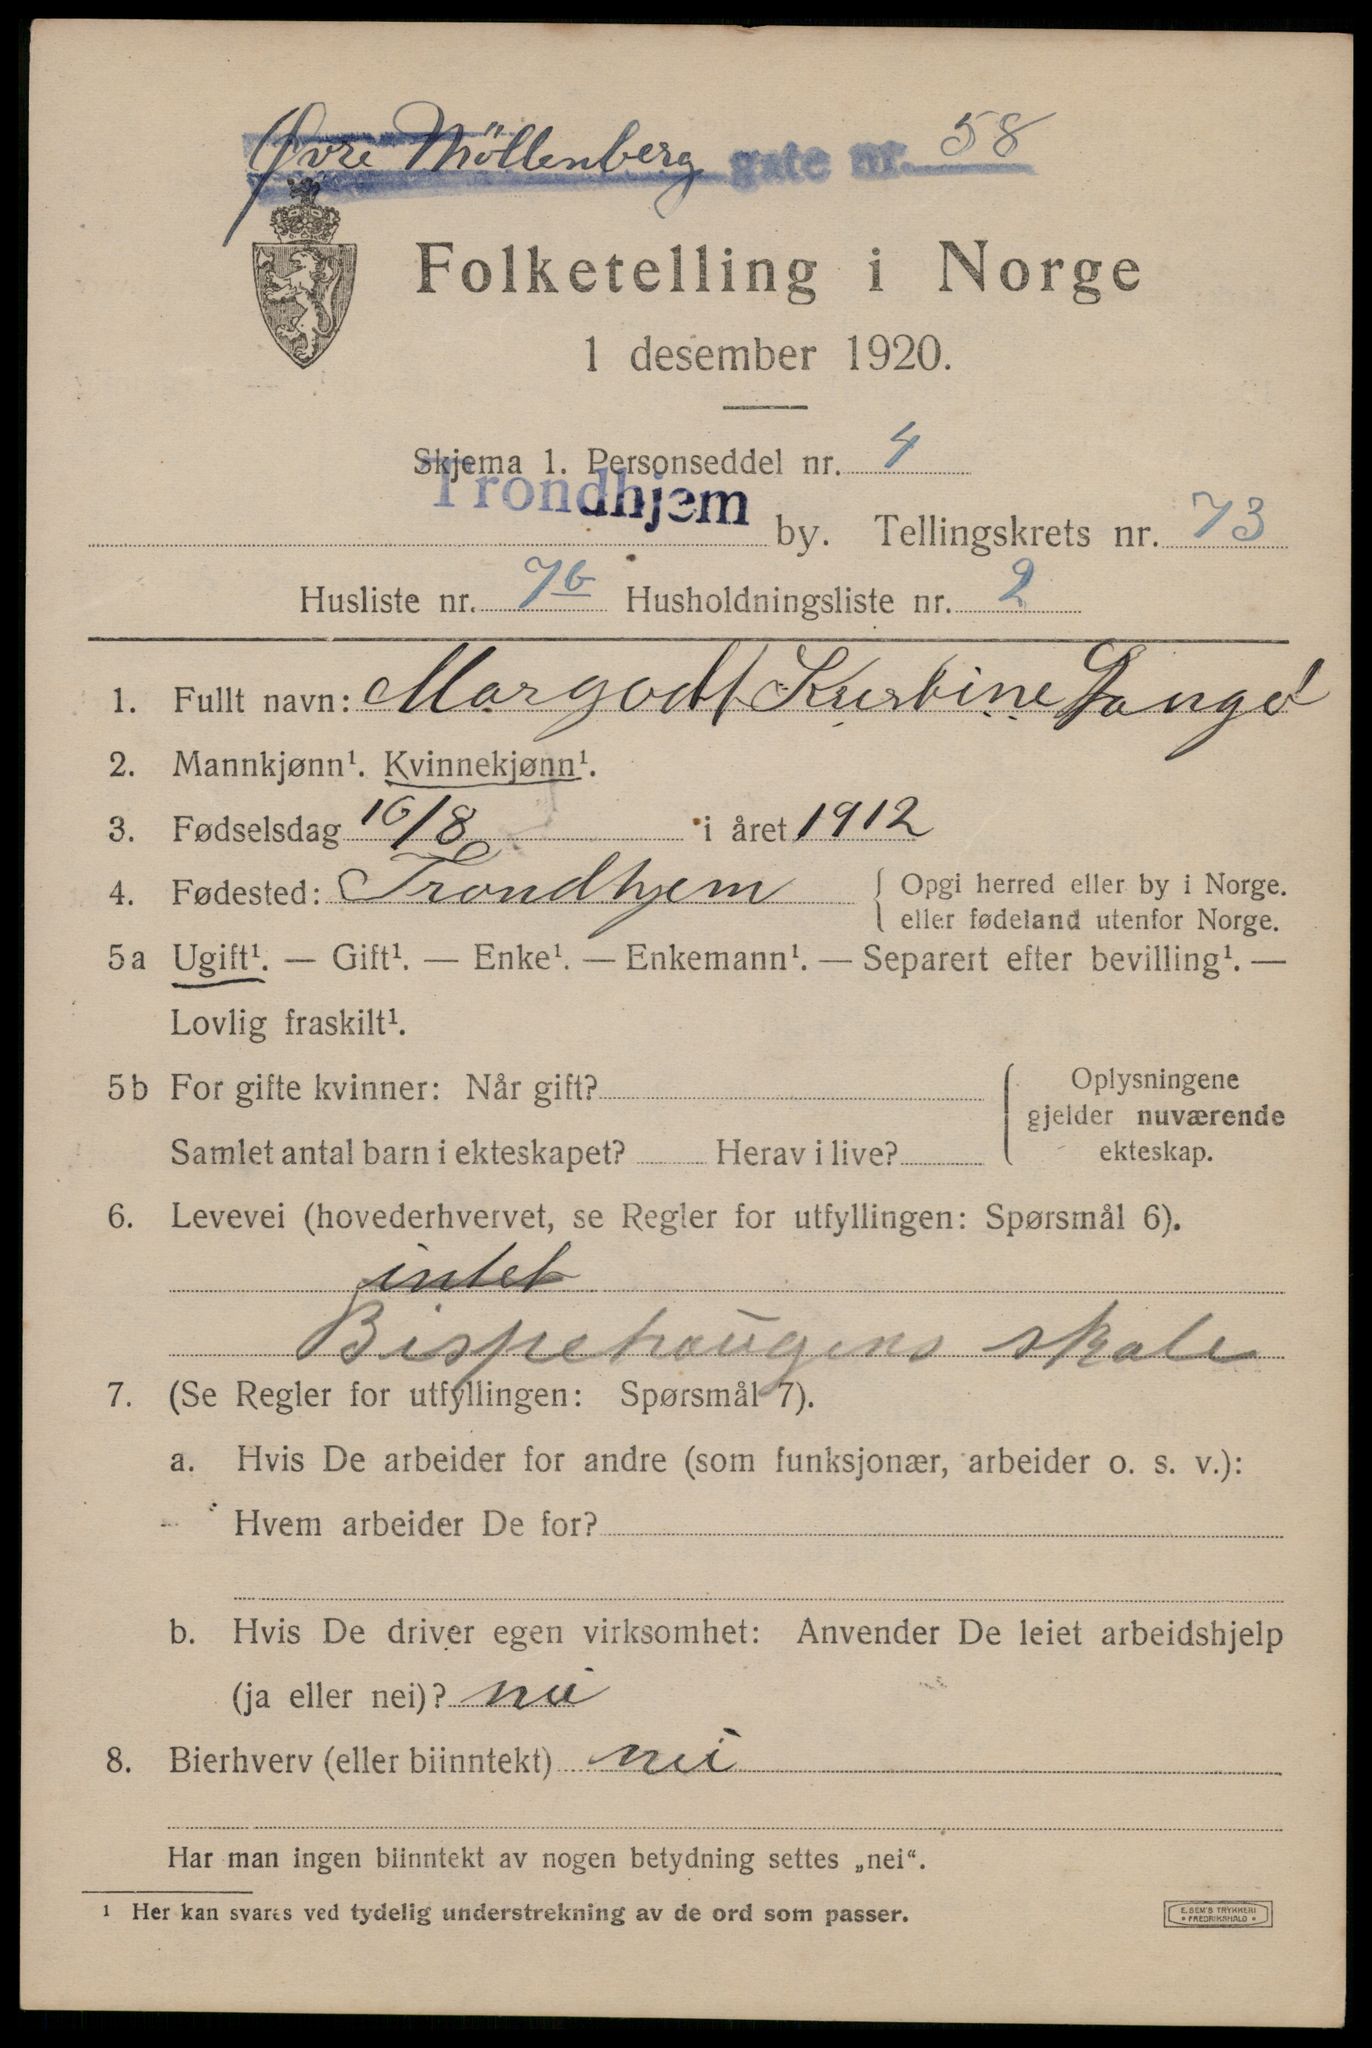 Øvre Möllenberg gate nr. 58
Folketelling i Norge
1 desember 1920.
Skjema 1. Personseddel nr. 4
Trondhjem by. Tellingskrets nr. 73
Husliste nr. 7b Husholdningsliste nr. 2
1. Fullt navn: Margodt Kurbine Langø
2. Mannkjønn¹. Kvinnekjønn¹.
3. Fødselsdag 16/8 i året 1912
4. Fødested: Trondhjem { Opgi herred eller by i Norge.
eller fødeland utenfor Norge.
5a Ugift¹. — Gift¹. — Enke¹. — Enkemann¹. — Separert efter bevilling¹. —
Lovlig fraskilt¹.
5b For gifte kvinner: Når gift?
Samlet antal barn i ekteskapet? Herav i live?
Oplysningene
gjelder nuværende
ekteskap.
6. Levevei (hovederhvervet, se Regler for utfyllingen: Spørsmål 6).
intet
Bispehaugens skole
7. (Se Regler for utfyllingen: Spørsmål 7).
a. Hvis De arbeider for andre (som funksjonær, arbeider o. s. v.):
Hvem arbeider De for?
b. Hvis De driver egen virksomhet: Anvender De leiet arbeidshjelp
(ja eller nei)? nei
8. Bierhverv (eller biinntekt) nei
Har man ingen biinntekt av nogen betydning settes „nei“.
¹ Her kan svares ved tydelig understrekning av de ord som passer.
E. SEM'S TRYKKERI
* FREDRIKSHALD *